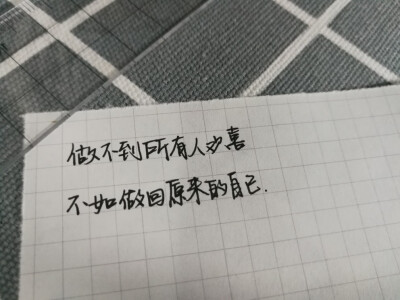 做不到所有人欢喜
不如做回原来的自己.